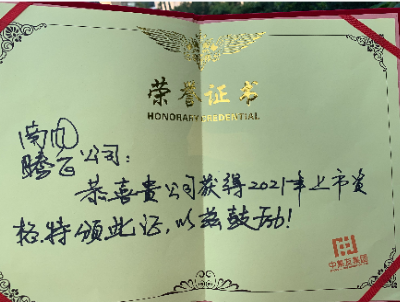 荣誉证书
HONORARY CREDENTIAL
南风
腾飞公司：
恭喜贵公司获得2021年上市资
格特颁此证，以兹鼓励！